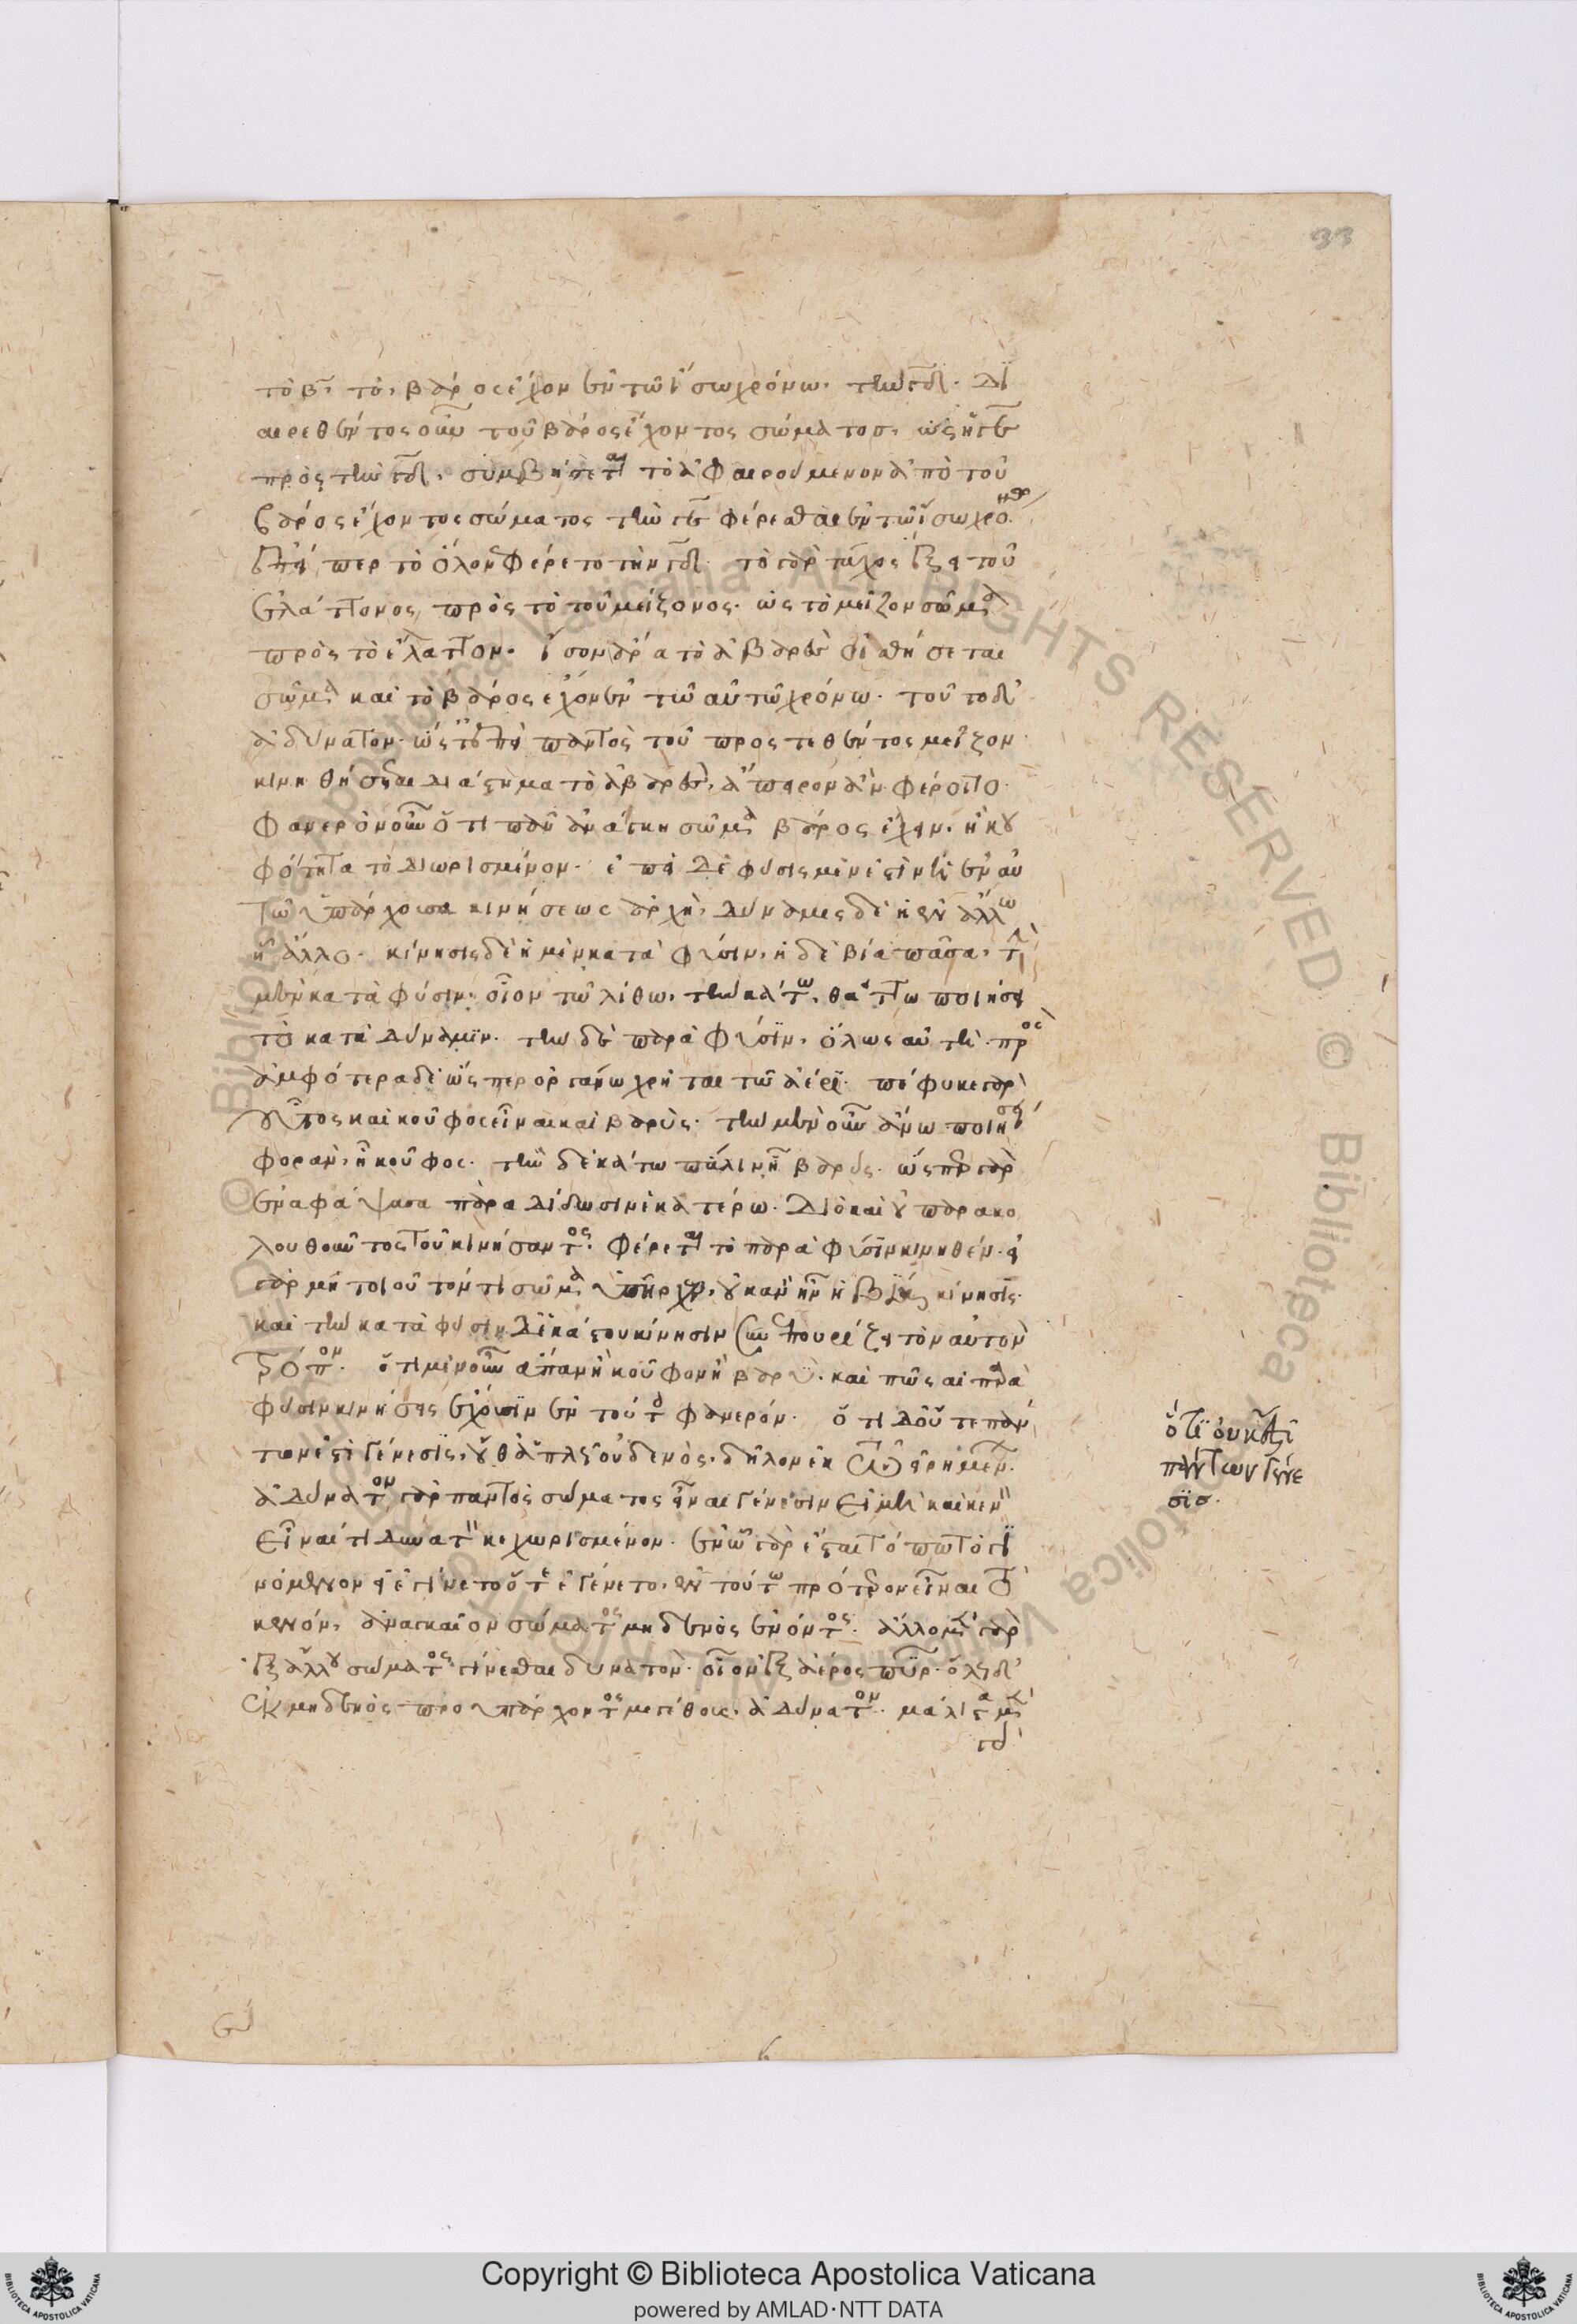 33
τὸ β, τὸ, βάρος ἔχον ἐν τῶ ἴσω χρόνω, τὴν γδ. δι
αιρεθέντος οὖν τοῦ βάρος ἔχοντος σώματος, ὡς ἡ γε
πρὸς τὴν γδ, συμβήσεται τὸ ἀφαιρούμενον ἀπὸ τοῦ
βάρος ἔχοντος σώματος τὴν γε φέρεσθαι ἐν τῶ ἴσω χρό
ἐπείπερ τὸ ὅλον ἐφέρετο τὴν γδ. τὸ γὰρ τάχος ἕξει τοῦ
ἐλάττονος πρὸς τὸ τοῦ μείζονος. ὡς τὸ μεῖζον σῶμα
πρὸς τὸ ἔλαττον. ἴσον ἄρα τὸ ἀβαρὲς οἰσθήσεται
σῶμα καὶ τὸ βάρος ἔχον ἐν τῶ αὐτῶ χρόνω. τοῦτο δ'
ἀδύνατον. ὥστ' ἐπεὶ παντὸς τοῦ προστεθέντος μεῖζον
κινηθήσεται διάστημα τὸ ἀβαρὲς, ἄπειρον ἂν φέροιτο.
φανερὸν οὖν ὅτι πᾶν ἀνάγκη σῶμα βάρος ἔχειν, ἢ κου
φότητα τὸ διωρισμένον. ἐπεὶ δὲ φύσις μέν ἐστιν ἡ ἐν αὐ
τῶ ὑπάρχουσα κινήσεως ἀρχὴ, δύναμις δὲ ἡ ἐν ἄλλω
ἢ ἄλλο. κίνησις δὲ ἡ μὲν κατὰ φύσιν, ἡ δὲ βία πᾶσα, τὴν
μὲν κατὰ φύσιν, οἷον τῶ λίθω, τὴν κάτω, θάττω ποιήσει
τὸ κατὰ δύναμιν. τὴν δὲ παρὰ φύσιν, ὅλως αὐτή. πρὸς
ἀμφότερα δὲ ὥσπερ ὀργάνω χρῆται τῶ ἀέρι. πέφυκε γὰρ
οὗτος καὶ κοῦφος εἶναι καὶ βαρύς. τὴν μὲν οὖν ἄνω ποιήσει
φορὰν, ἧ κοῦφος. τὴν δὲ κάτω πάλιν ἧ βαρύς. ὥσπερ γὰρ
ἐναφάψασα παραδίδωσιν ἑκατέρω. διὸ καὶ οὐ παρακο
λουθοῦντος τοῦ κινήσαντος. φέρεται τὸ παρὰ φύσιν κινηθέν. εἰ
γὰρ μὴ τοιοῦτόν τι σῶμα ὑπῆρχεν, οὐκ ἂν ἦν ἡ βία κίνησις.
καὶ τὴν κατὰ φύσιν δ' ἑκάστου κίνησιν συνεπουρίζει τὸν αὐτὸν
τρόπον. ὅτι μὲν οὖν ἅπαν ἢ κοῦφον ἢ βαρύ. καὶ πῶς αἱ παρὰ
φύσιν κινήσεις ἔχουσιν ἐν τούτοις φανερόν. ὅτι δ' οὔτε πάν
των ἐστὶ γένεσις, οὔθ' ἁπλῶς οὐδενὸς, δῆλον ἐκ τῶν εἰρημένων.
ἀδύνατον γὰρ παντὸς σώματος εἶναι γένεσιν εἰ μὴ καὶ κενὸν
εἶναί τι δυνατὸν κεχωρισμένον. ἐν ὧ γὰρ ἔσται τόπω τὸ γι
νόμενον εἰ ἐγίνετο ὅτε ἐγένετο, ἐν τούτω πρότερον εἶναι τὸ
κενὸν, ἀναγκαῖον σώματος μηδενὸς ἐνόντος. ἄλλο μὲν γὰρ
ἐξ ἄλλου σώματος γίνεσθαι δυνατὸν. οἷον ἐξ ἀέρος πῦρ. ὅλως δ'
ἐκ μηδενὸς προϋπάρχοντος μεγέθους, ἀδύνατον. μάλιστα μὲν
γὰρ
ὅτι οὐκ ἔστι
πάντων γένε
σις.
© Biblioteca Apostolica Vaticana ALL RIGHTS RESERVED
Copyright © Biblioteca Apostolica Vaticana
powered by AMLAD·NTT DATA